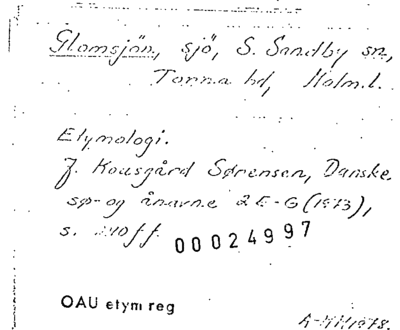 Glomsjön, sjö, S. Sandby sn,
Torna hd, Malm.l.
Etymologi.
J. Kousgård Sørensen, Danske
sø- og ånavne 2 E-G (1973),
s. ff.
00024997
OAU etym reg